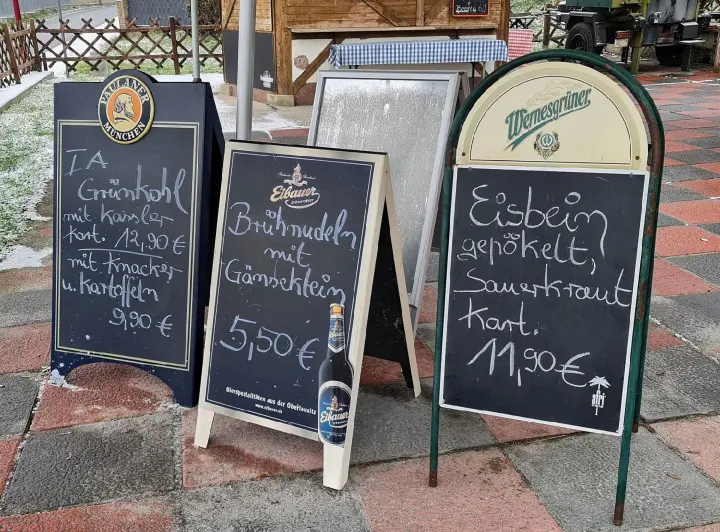 PAULANER
MÜNCHEN
IA
Grünkohl
mit Kassler
Kart. 12,90 €
mit Knacker
u. Kartoffeln
9,90 €
Eibauer
Brühnudeln
mit
Gänseklein
5,50 €
Eibauer
Bierspezialitäten aus der Oberlausitz
www.eibauer.de
Wernesgrüner
Eisbein
gepökelt,
Sauerkraut
Kart.
11,90 €